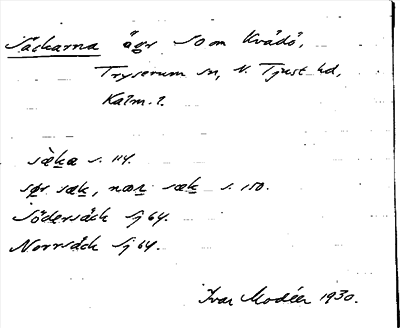 Säckarna ögr SO om Kvädö,
Tryserum sn, N. Tjust hd,
Kalm. l.
sæka s. 114.
sør sæk, nor sæk s. 150.
Södersäck fj 64.
Norrsäck fj 64.
Ivar Modéer 1930.